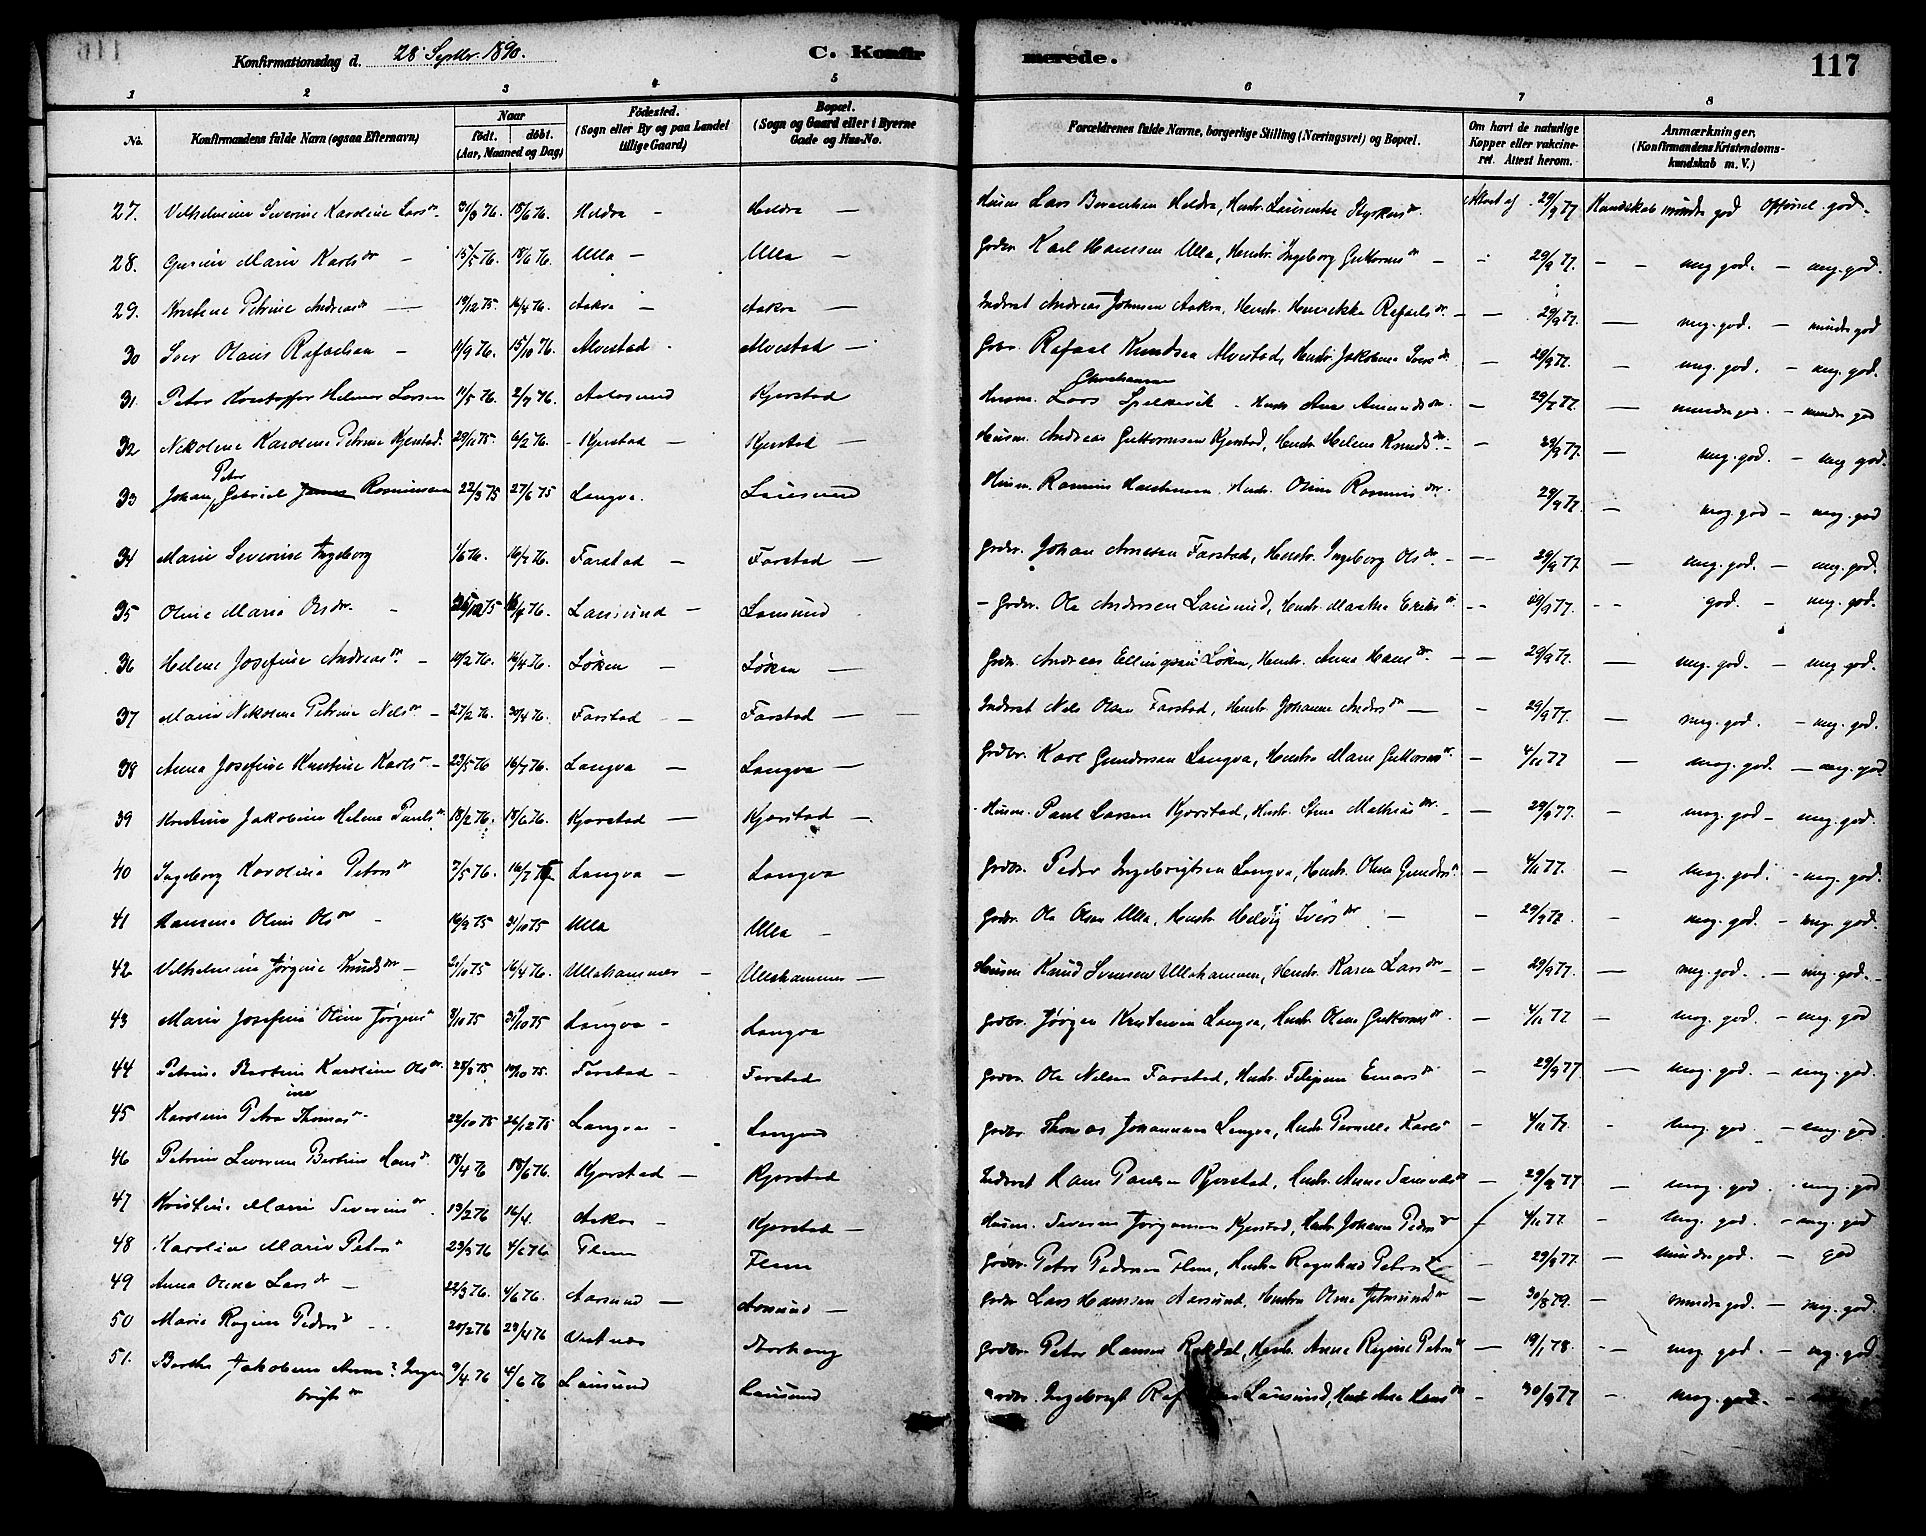 Konfirmationsdag d. 28 Septbr. 1890. C. Konfirmerede. 117
1 2 3 4 5 6 7 8
No. Konfirmandens fulde Navn (ogsaa Efternavn) Naar født. døbt. (Aar, Maaned og Dag) Fødested. (Sogn eller By og paa Landet tillige Gaard) Bopæl. (Sogn og Gaard eller i Byerne Gade og Hus-No. Forældrenes fulde Navne, borgerlige Stilling (Næringsvei) og Bopæl. Om havt de naturlige Kopper eller vakcineret. Attest herom. Anmærkninger, (Konfirmandens Kristendomskundskab m. V.)
27. Vilhelmine Severine Karoline Larsdr. 31/3 76. 18/6 76. Heldra – Heldra – Husm. Lars Heldra, Hustr. 29/9 77 Kundskab mindre god Opførsel god.
28. Gurine Marie Karlsdr – 15/5 76. 18/6 76. Ulla – Ulla – Grdbr. Karl Hanssen Ulla, Hustr. Ingeborg Guttormsdr – 29/9 77. – meg. god. – meg. god.
29. Kristine Petrine Andreasdr – 19/12 75 16/4 76. Aakre – Aakre – Inderst Andreas Johnsen Aakre, Hustr. Rafaelsdr. – 29/9 77. – meg. god. – mindre god
30 Iver Olaus Rafaelsen – 11/9 76. 15/10 76. Alvestad – Alvestad – Grbr. Rafael Knudsen Alvestad, Hustr. Jakobine Iversdr. – 29/9 77. – meg. god. – meg. god.
31. Peter Kristoffer Helmer Larsen 11/5 76. 2/7 76. Aalesund Kjerstad Husm. Lars Christiansen Spelkevik – Hustr. Ane Amundsdr. – 29/9 77. – mindre god. – mindre god
32 Nikoline Karoline Petrine Kjerstad. 29/11 75. 6/2 76. – Kjerstad – Kjerstad Husm. Andreas Guttormsen Kjerstad, Hustr. Helene Knudsdr. – 29/9 77. – meg. god. – meg god.
33 Johan Peter Gabriel Rasmussen 22/3 75 27/6 75 Longva. Lausund Husm. Rasmus Hustr. Oline Rasmusdr. 29/9 77. – meg. god – meg. god
34 Marie Severine Ingeborg 1/6 76. 16/7 76. Farstad – Farstad – Grdbr. Johan Arnesen Farstad, Hustr. Ingeborg Olsdr. – 29/9 77. – meg. god. – meg. god.
35 Oline Marie Olsdr. – 76. Lausund – Lausund – Grdbr. Ole Andersen Lausund, Hustr. Marthe Eriksdr. – 29/9 77. – god. – meg. god.
36 Helene Josefine Andreasdr. – 19/2 76. 16/4 76. Løken – Løken – Grdbr. Andreas Ellingsen Løken, Hustr. Anna Hansdr. – 29/9 77. – meg. god. – meg. god.
37 Marie Nikoline Petrine Nelsdr – 27/2 76. 30/4 76. Farstad – Farstad – Inderst Nels Olsen Farstad, Hustr. Johanne Andersdr – 29/9 77. – meg. god. – meg. god.
38 Anna Josefine Kristine Karlsdr – 23/5 76 16/7 76. Longva – Longva – Grdbr. Karl Gundersen Longva, Hustru Marie Guttormsdr – 4/11 77 – meg. god. – meg. god
39 Kristine Jakobine Helene Paulsdr. 18/2 76. 18/6 76. Kjerstad – Kjerstad – Husm. Paul Larsen Kjerstad, Hustr. Mathiasdr. – 29/9 77. – meg. god – meg. god.
40 Ingeborg Karoline Petersdr 7/5 76. 16/7 76 Longva – Longva Grdbr. Peder Ingebrigtsen Longva, Hustr. Oline Gundersdr – 4/11 77. – meg. god. – meg. god.
41 Hansine Oline Olsdr – 16/9 75 31/10 75 Ulla Ulla – Grdbr. Ole Olsen Ulla, Hustr. Helvig Iversdr – 29/9 77. – meg. god – meg. god.
42 Vilhelmine Jørgine Knudsdr – 2/10 75 16/4 76. Ullahammer – Ullahammer – Husm Knud Svensen Ullahammer, Hustr. Karen Larsdr – 29/9 77. – meg. god. – meg. god.
43 Marie Josefine Oline Jørgensdr 3/10 75 31/10 75 Longva – Longva Grdbr. Jørgen Kristensen Longva, Hustr. Oline Guttormsdr. – 4/11 77 – meg. god. – meg. god
44 Petrine Bertine Karoline Olsdr. 75 75. Farstad – Farstad Grdbr. Ole Nelsen Farstad, Hustr. Filipine Einarsdr – 29/9 77 – meg. god. – meg. god.
45 Karoline Petra ine Thomasdr – 22/10 75 26/12 75 Longva – Longva Grdbr. Thomas Johannesen Longva, Hustr. Pernelle Karlsdr – 4/11 77. – meg. god – meg. god.
46 Petrine Severine Bertine Hansdr. 18/4 76 18/6 76. Kjerstad – Kjerstad Inderst Hans Paulsen Kjerstad, Hustr. Anne – 29/9 77 – meg. god – meg. god
47 Kristine Marie Severinsdr. 19/2 76 16/4. Aakre – Kjerstad – Husm. Severin Jørgensen Kjerstad, Hustr. Johanne Pedersdr 4/11 77. – meg. god. – meg. god
48 Karoline Marie Petersdr 23/3 76 4/6 76 Flem Flem Grdbr. Peter Pedersen Flem, Hustru Ragnhild Petersdr – 29/9 77. – mindre god. – god
49 Anna Oline Larsdr – 22/3 76. 4/6 76. Aarsund – Aarsund – Grdbr Lars Hanssen Aarsund, Hustru Oline – 30/8 79. – mindre god. – meg. god.
50 Marie Regine Pedersdr – 20/2 76 23/4 76 Vestnes Grdbr. Peter Hansen Rekdal, Hustr. Anne Regine Petersdr – 19/1 78. – meg. god. – meg. god.
51. Berthe Jakobine Anna Ingebrigtsdr 9/4 76 4/6 76 Lausund Lausund Grdbr. Ingebrigt Lausund, Hustr. Ane Larsdr – 30/9 77 – meg. god. –